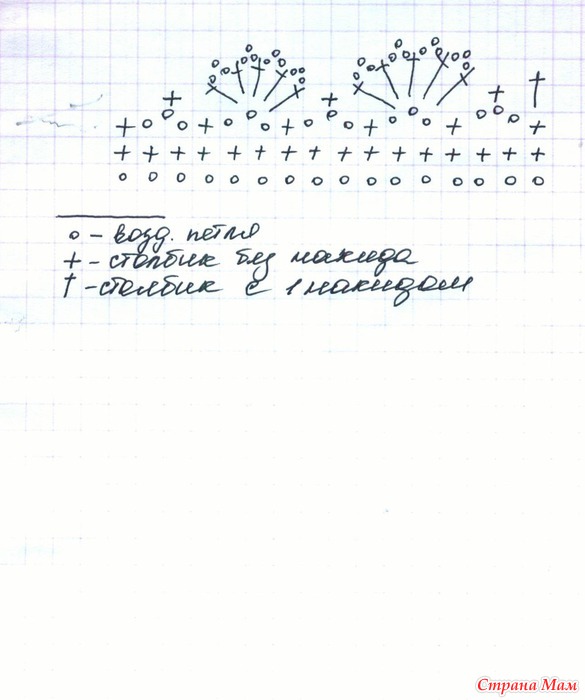 o - возд. петля
+ - столбик без накида
† - столбик с 1 накидом
Страна Мам